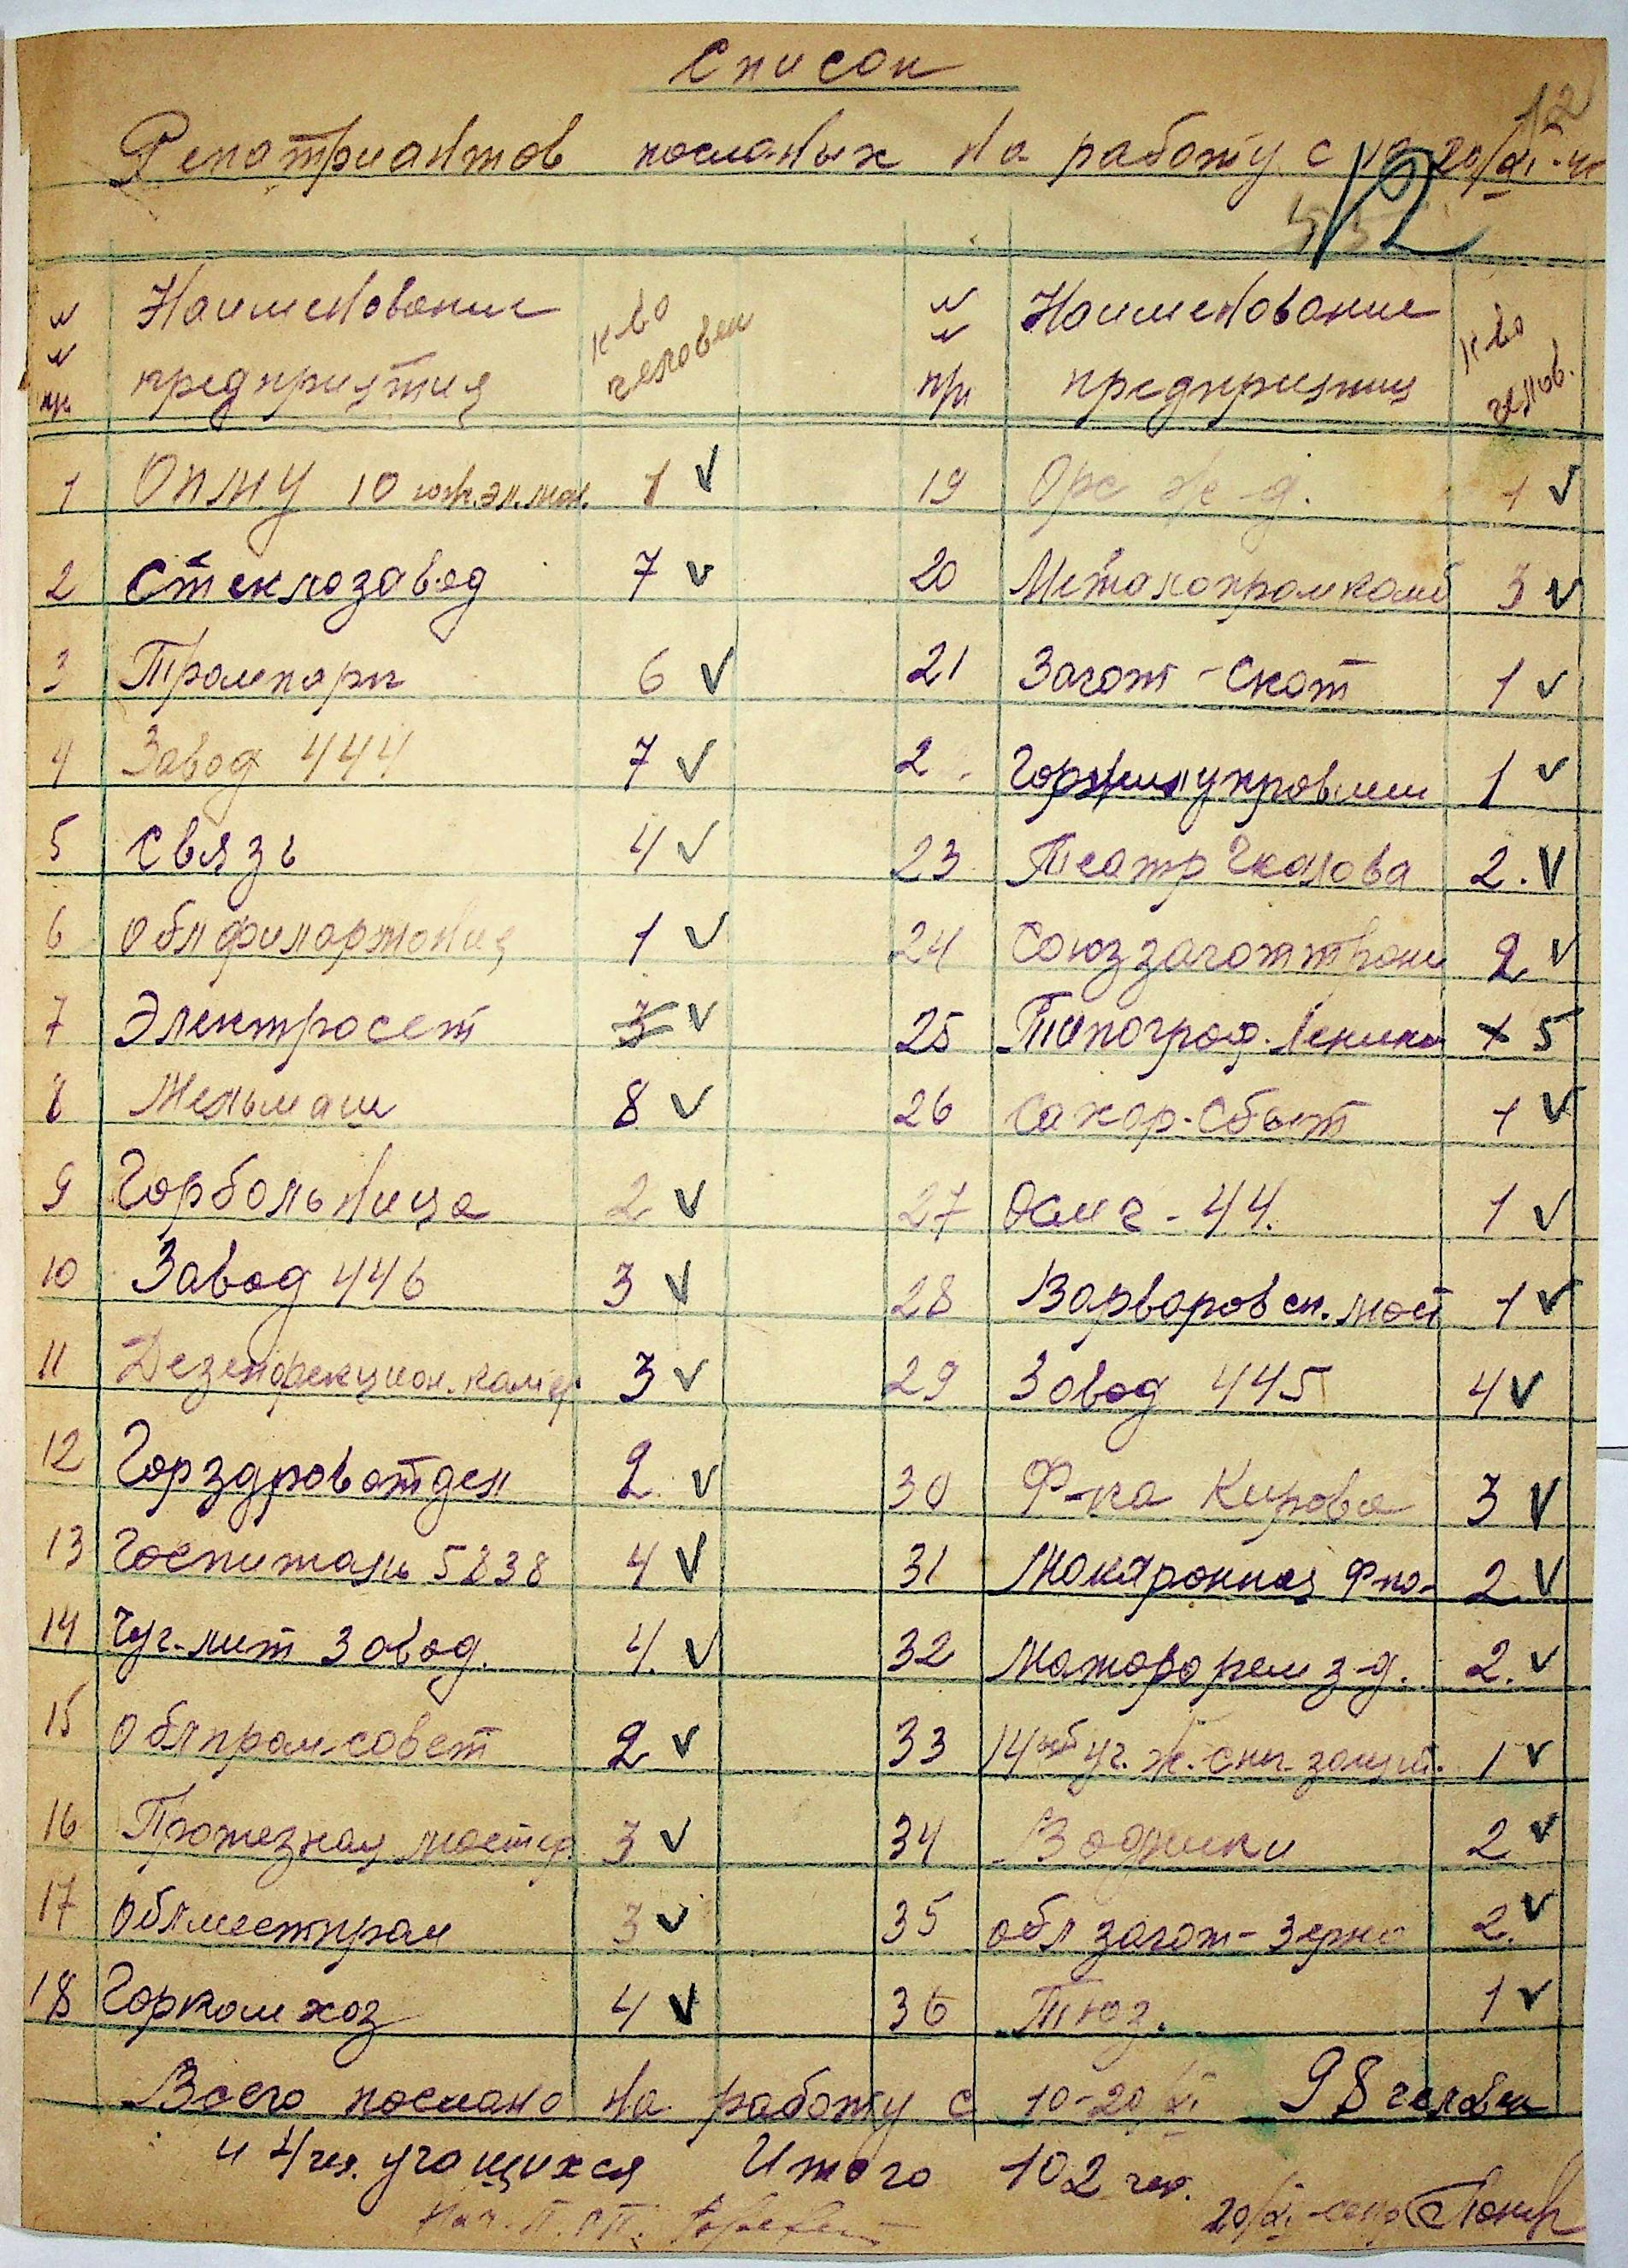 12
Список
Репатриантов посланых на работу с 10-20/XI-
12
№ № пп
Наименование предприятия
к-во человек
№ № пп
Наименование предприятия
к-во челов.
1 ОПМУ 10 1 v
19 Орс ж-д. 1 v
2 Стеклозавод 7 v
20 Металопромкомб 3 v
3 Трампарк 6 v
21 Загот-скот 1 v
4 Завод 444 7 v
2 1 v
5 Связь 4 v
23 Театр Чкалова 2. v
6 Облфилармония 1 v
24 2 v
7 Электросет 3 v
25 Типограф. Ленина + 5
8 Мельмаш 8 v
26 Сахар-Сбыт 1 v
9 Горбольница 2 v
27 Осмч-44. 1 v
10 Завод 446 3 v
28 Варваровск. мост 1 v
11 Дезенфекцион. камер 3 v
29 Завод 445 4 v
12 Горздравотдел 2. v
30 Ф-ка Кирова 3 v
13 Госпиталь 5238 4 v
31 Макаронная ф-ка 2 v
14 Чуг-лит завод. 4. v
32 Моторорем з-д. 2. v
15 Облпром-совет 2 v
33 14 уч. ж. снег. защит. 1 v
16 Протезная мастер 3 v
34 Водники 2 v
17 Облместпром 3 v
35 обл загот-зерно 2. v
18 Горкомхоз 4 v
36 Тюз. 1 v
Всего послано на работу с 10-20/XI 98 человек
и 4 чел. учащихся Итого 102 чел.
Нач. П.П.
20/XI